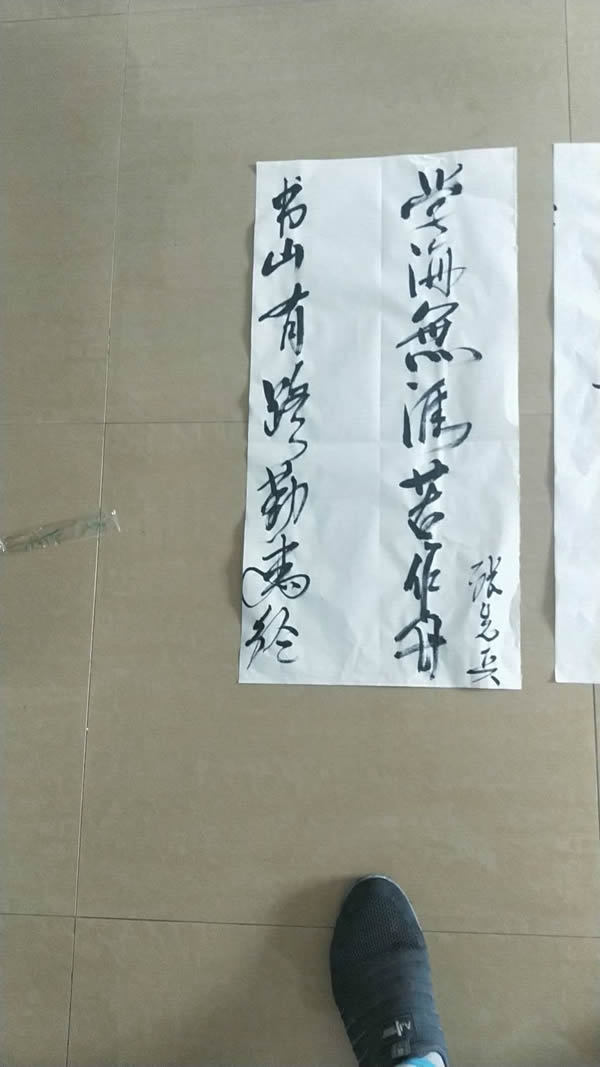 书山有路勤为径
学海無涯苦作舟
张先兵